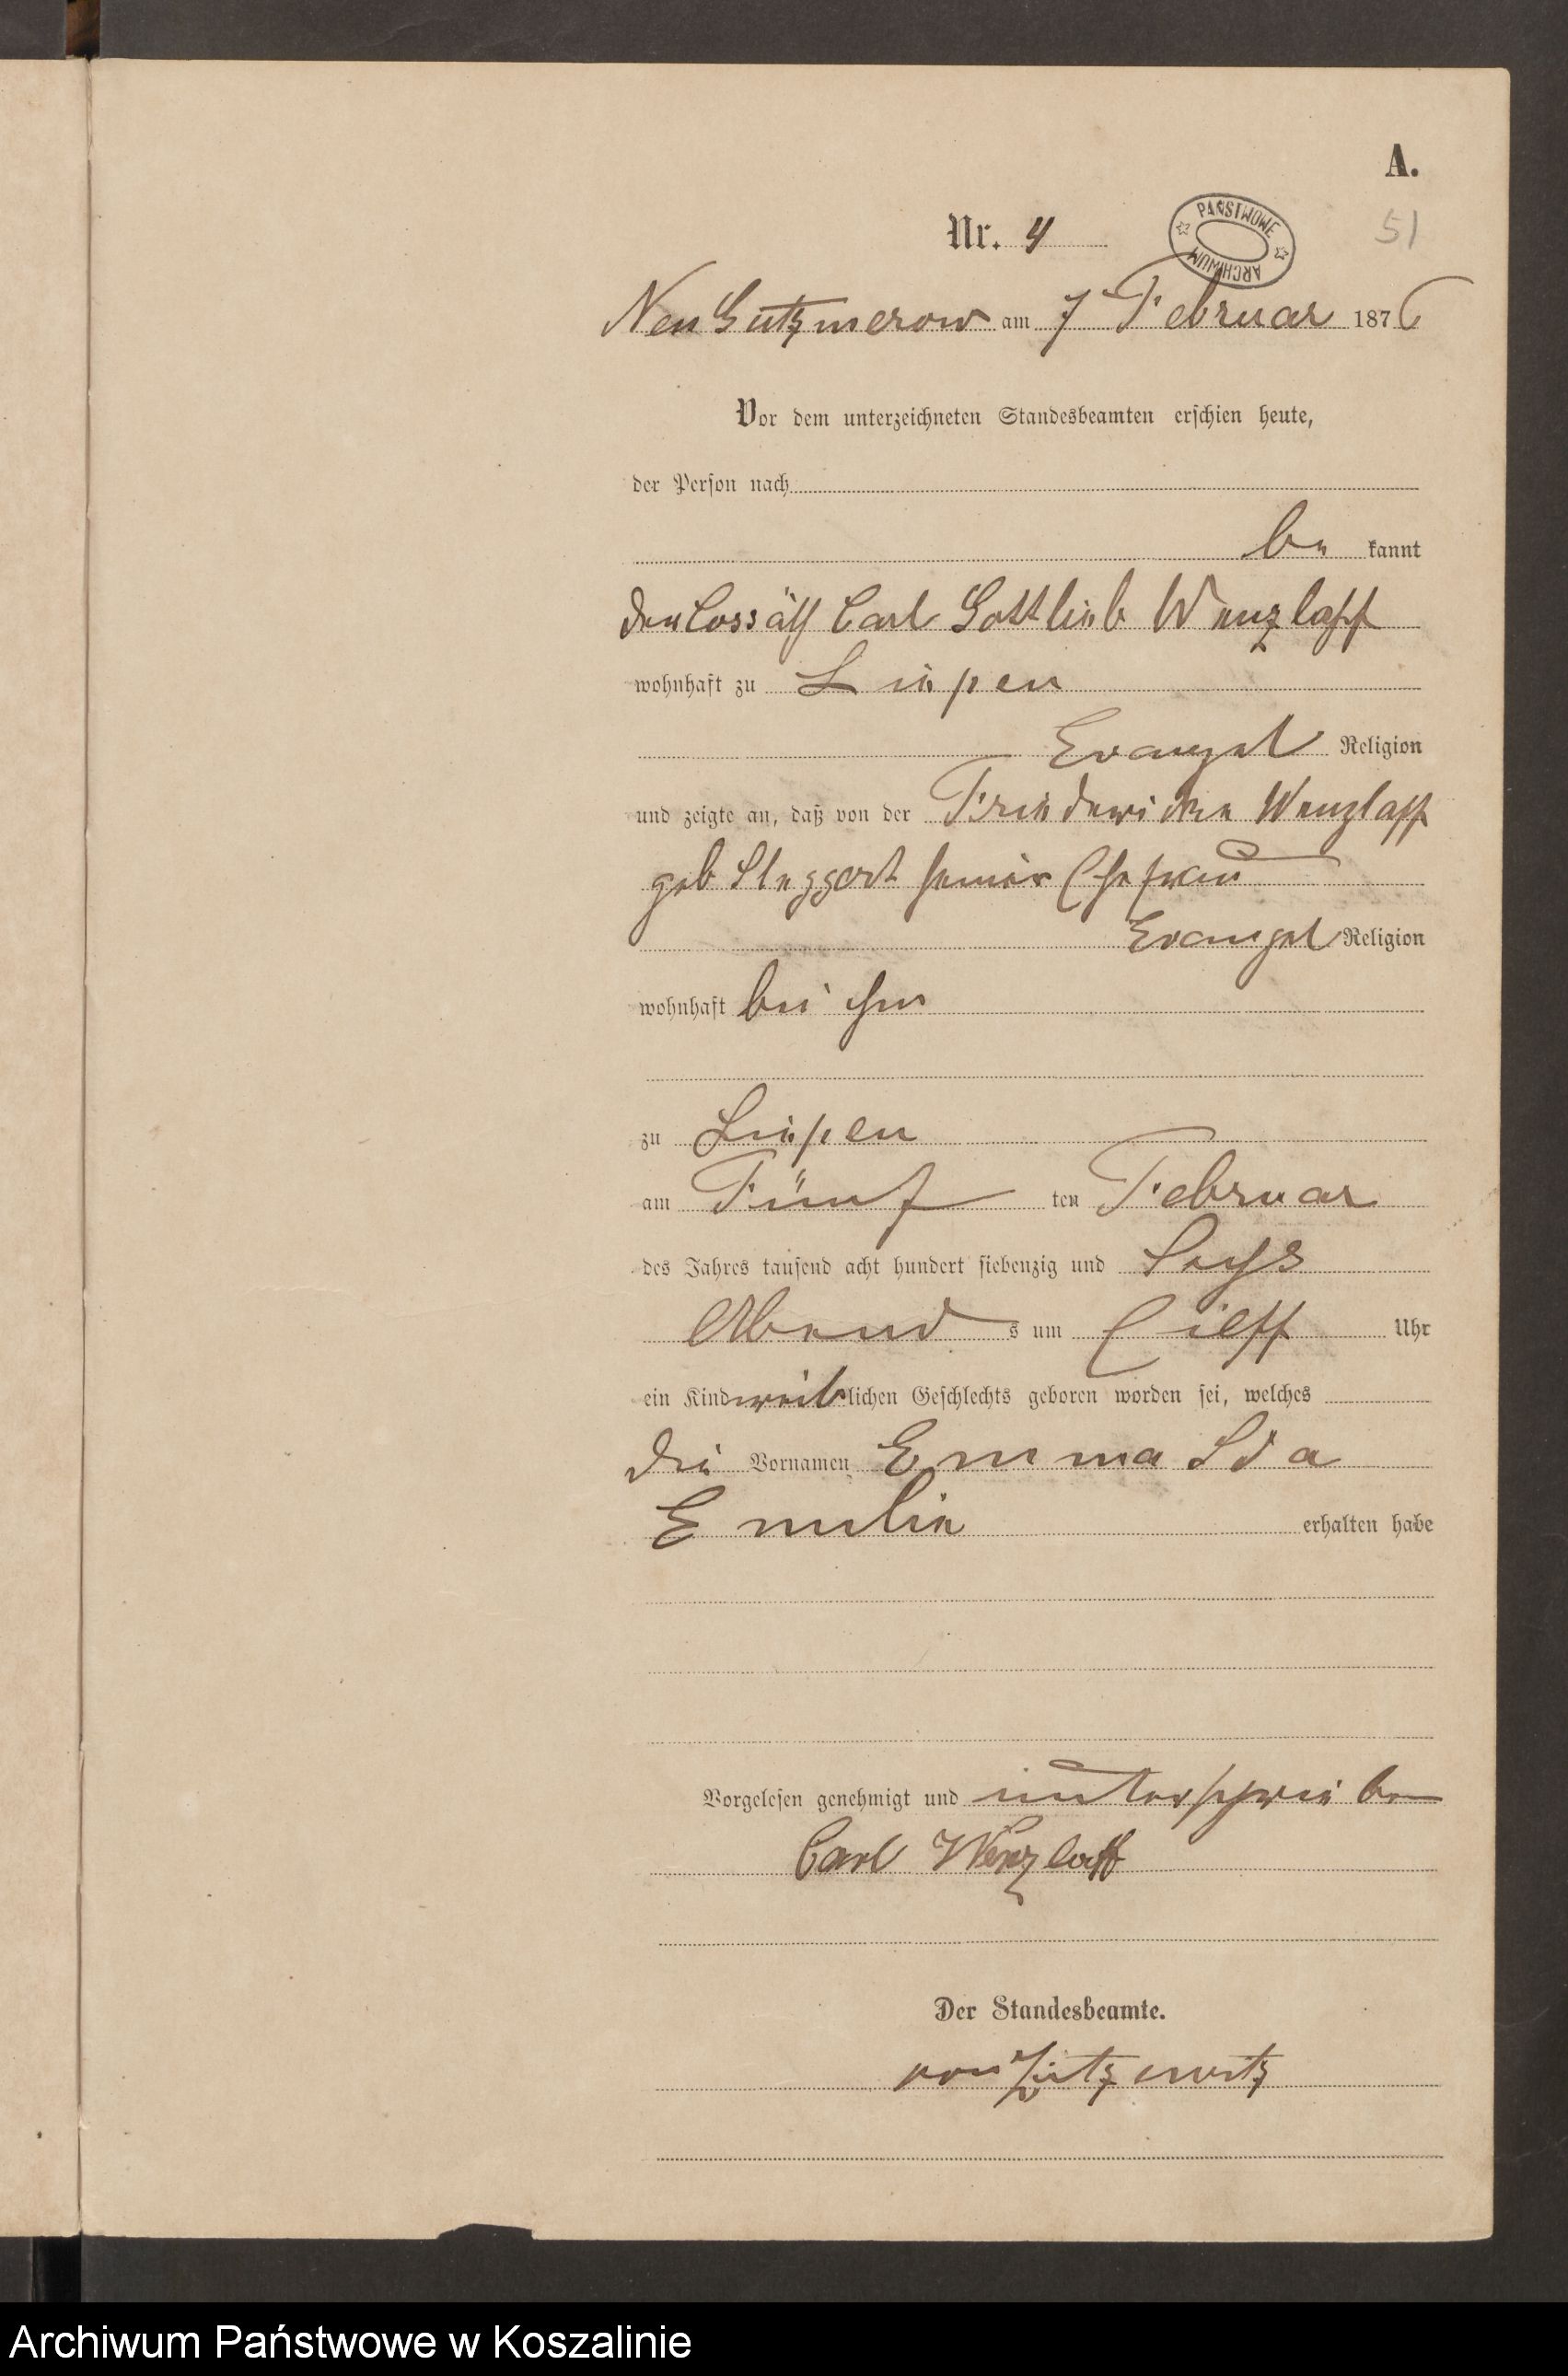 A.
Nr. 4
PAŃSTWOWE ARCHIWUM
51
Neu Gutzmerow am 7 Februar 1876
Vor dem unterzeichneten Standesbeamten erschien heute,
der Person nach
be kannt
der Cossäth Carl Gottlieb Wenzlaff
wohnhaft zu Liepen
Evangel Religion
und zeigte an, daß von der Friedericke Wenzlaff
geb seiner Ehefrau
Evangel Religion
wohnhaft bei ihm
zu Liepen
am Fünf ten Februar
des Jahres tausend acht hundert siebenzig und Sechs
Abend s um Eilff Uhr
ein Kind weiblichen Geschlechts geboren worden sei, welches
die Vornamen Emma Ida
Emilie erhalten habe
Vorgelesen genehmigt und unterschrieben
Carl Wenzlaff
Der Standesbeamte.
von Zitzewitz
Archiwum Państwowe w Koszalinie